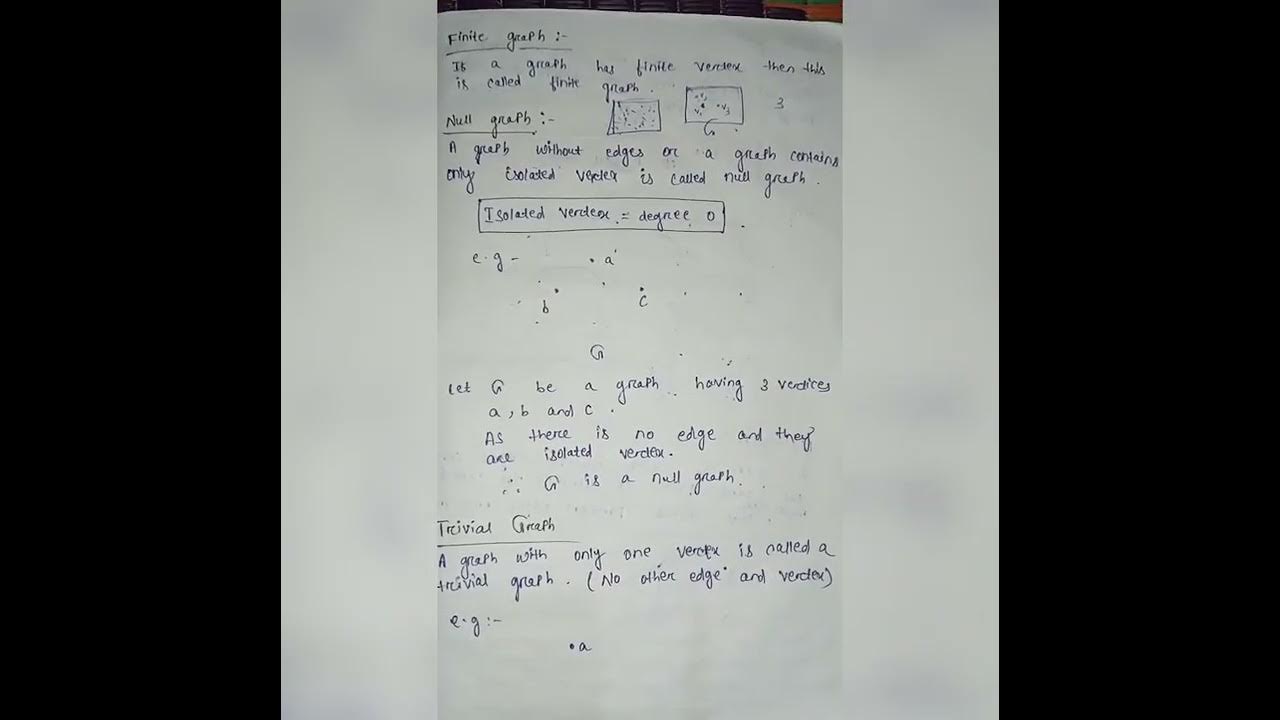 Finite graph :-
If a graph has finite vertex then this
is called finite graph.
v2
v1 v3
3
G
Null graph :-
A graph without edges or a graph contains
only isolated vertex is called null graph.
Isolated vertex = degree 0
e.g -
a
b
c
G
Let G be a graph having 3 vertices
a, b and c.
As there is no edge and they
are isolated vertex.
∴ G is a null graph.
Trivial Graph
A graph with only one vertex is called a
trivial graph. (No other edge and vertex)
e.g :-
a